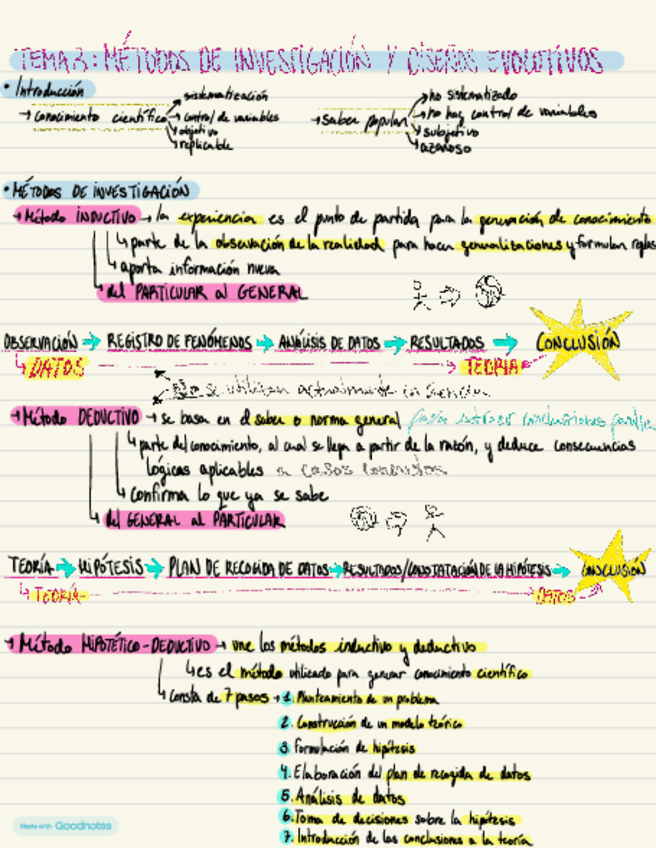 TEMA 3: MÉTODOS DE INVESTIGACIÓN Y DISEÑOS EVOLUTIVOS
• Introducción
→ conocimiento científico → sistematización
→ control de variables
→ objetivo
→ replicable
→ saber popular → no sistematizado
→ no hay control de variables
→ subjetivo
→ azaroso
• MÉTODOS DE INVESTIGACIÓN
→ Método INDUCTIVO → la experiencia es el punto de partida para la generación de conocimiento
↳ parte de la observación de la realidad para hacer generalizaciones y formular reglas
↳ aporta información nueva
↳ del PARTICULAR al GENERAL
OBSERVACIÓN → REGISTRO DE FENÓMENOS → ANÁLISIS DE DATOS → RESULTADOS → CONCLUSIÓN
↳ DATOS → TEORÍA
No se utilizan actualmente la ciencia
→ Método DEDUCTIVO → se basa en el saber o norma general para extraer conclusiones
↳ parte del conocimiento, al cual se llega a partir de la razón, y deduce consecuencias
lógicas aplicables a casos concretos
↳ confirma lo que ya se sabe
↳ del GENERAL al PARTICULAR
TEORÍA → HIPÓTESIS → PLAN DE RECOGIDA DE DATOS → RESULTADOS/CONSTATACIÓN DE LA HIPÓTESIS → CONCLUSIÓN
↳ TEORÍA DATOS
→ Método HIPOTÉTICO-DEDUCTIVO → une los métodos inductivo y deductivo
↳ es el método utilizado para generar conocimiento científico
↳ Consta de 7 pasos → 1. Planteamiento de un problema
2. Construcción de un modelo teórico
3. Formulación de hipótesis
4. Elaboración del plan de recogida de datos
5. Análisis de datos
6. Toma de decisiones sobre la hipótesis
7. Introducción de las conclusiones a la teoría
Made with Goodnotes